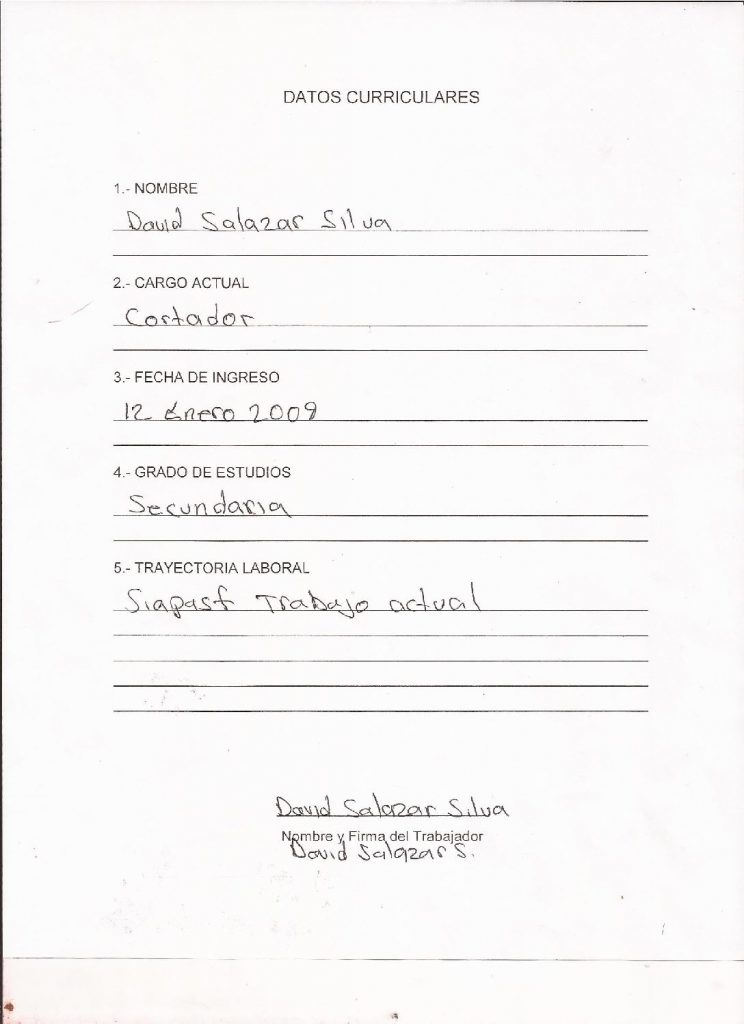 DATOS CURRICULARES
1.- NOMBRE
David Salazar Silva
2.- CARGO ACTUAL
Cortador
3.- FECHA DE INGRESO
12 Enero 2009
4.- GRADO DE ESTUDIOS
Secundaria
5.- TRAYECTORIA LABORAL
Siapasf Trabajo actual
David Salazar Silva
Nombre y Firma del Trabajador
David Salazar S.